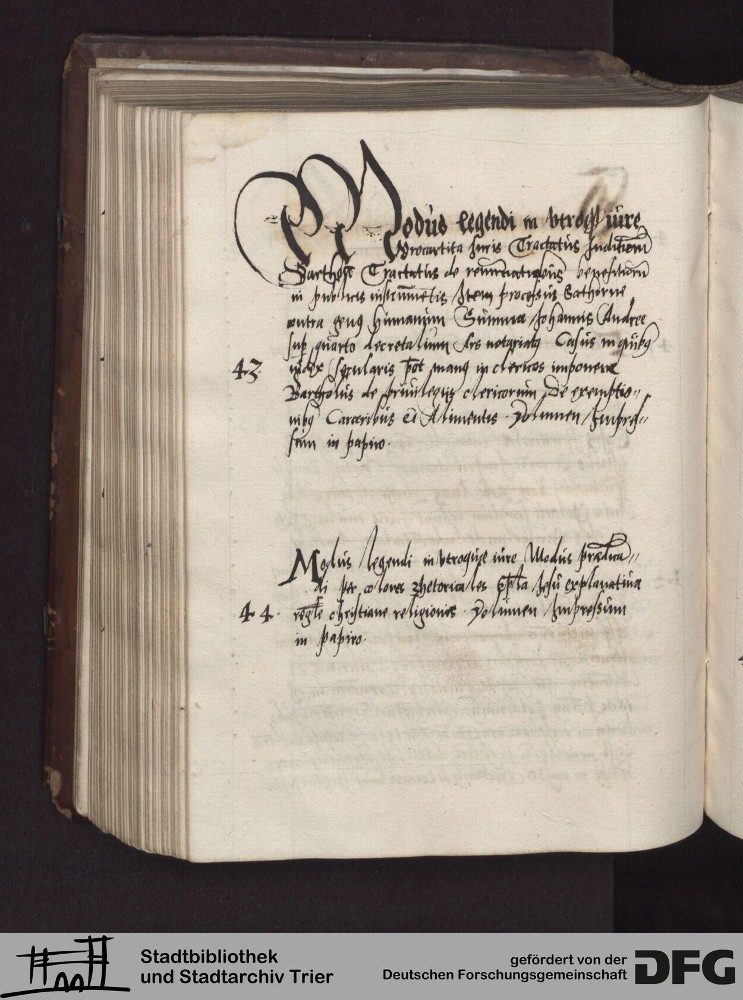 Modus legendi in vtroq3 iure
Tractatus Iudicioru
Bartholi Tractatus de renuntiationibus benefitioru
in publicis instrumetis Item processus Sathane
contra genus humanum Summa Johannis Andree
sup quarto decretalium Ars notariat9 Casus in quib9
43 iudex secularis pot man9 in clericos imponere
Bartholus de priuilegijs clericorum De exemptio„
nib9 Carceribus et Alimentis. Volumen Impres„
sum in papiro.
Modus legendi in vtroque iure Modus prædica„
di per colores rhetoricales Ep̄la Jesu explanatiua
44. regłe christiane religionis. Volumen Impressum
in papiro.
Stadtbibliothek
und Stadtarchiv Trier
gefördert von der
Deutschen Forschungsgemeinschaft
DFG